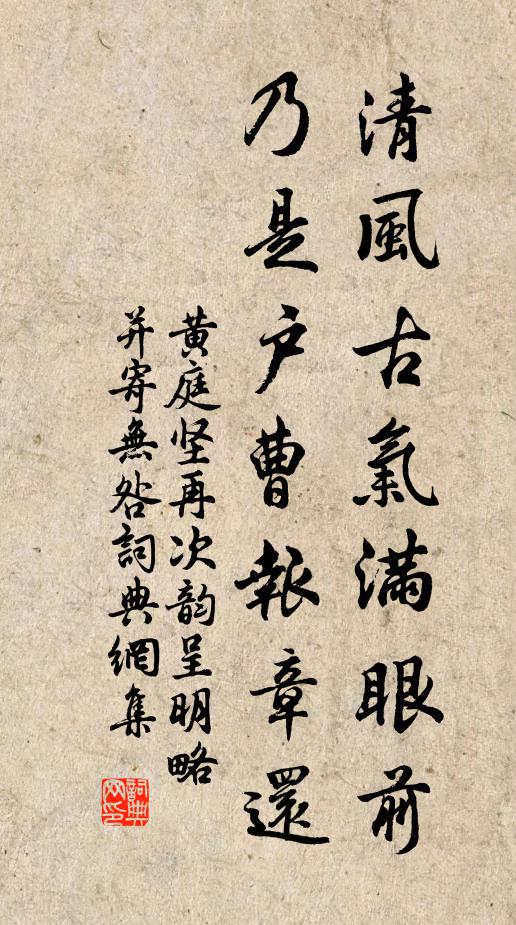 清風古氣滿眼前
乃是户曹報章還
黄庭坚再次韵呈明略
并寄無咎詞典網集
詞典網印